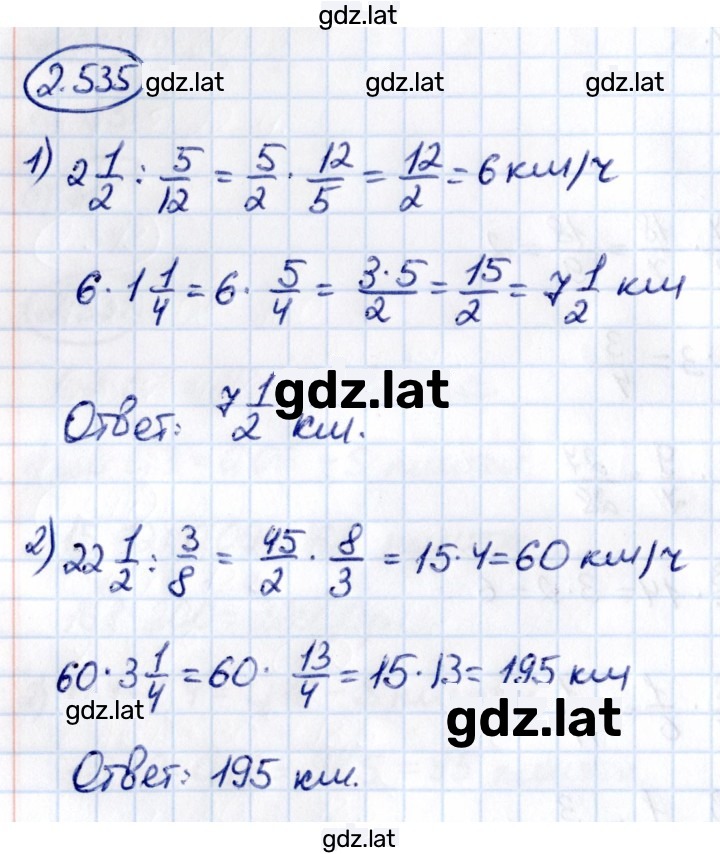 gdz.lat
2.535 gdz.lat gdz.lat gdz.lat
1) 2 1/2 : 5/12 = 5/2 · 12/5 = 12/2 = 6 км/ч
6 · 1 1/4 = 6 · 5/4 = 3·5/2 = 15/2 = 7 1/2 км
Ответ: 7 1/2 км.
gdz.lat
2) 22 1/2 : 3/8 = 45/2 · 8/3 = 15·4 = 60 км/ч
60 · 3 1/4 = 60 · 13/4 = 15·13 = 195 км
gdz.lat gdz.lat
Ответ: 195 км.
gdz.lat